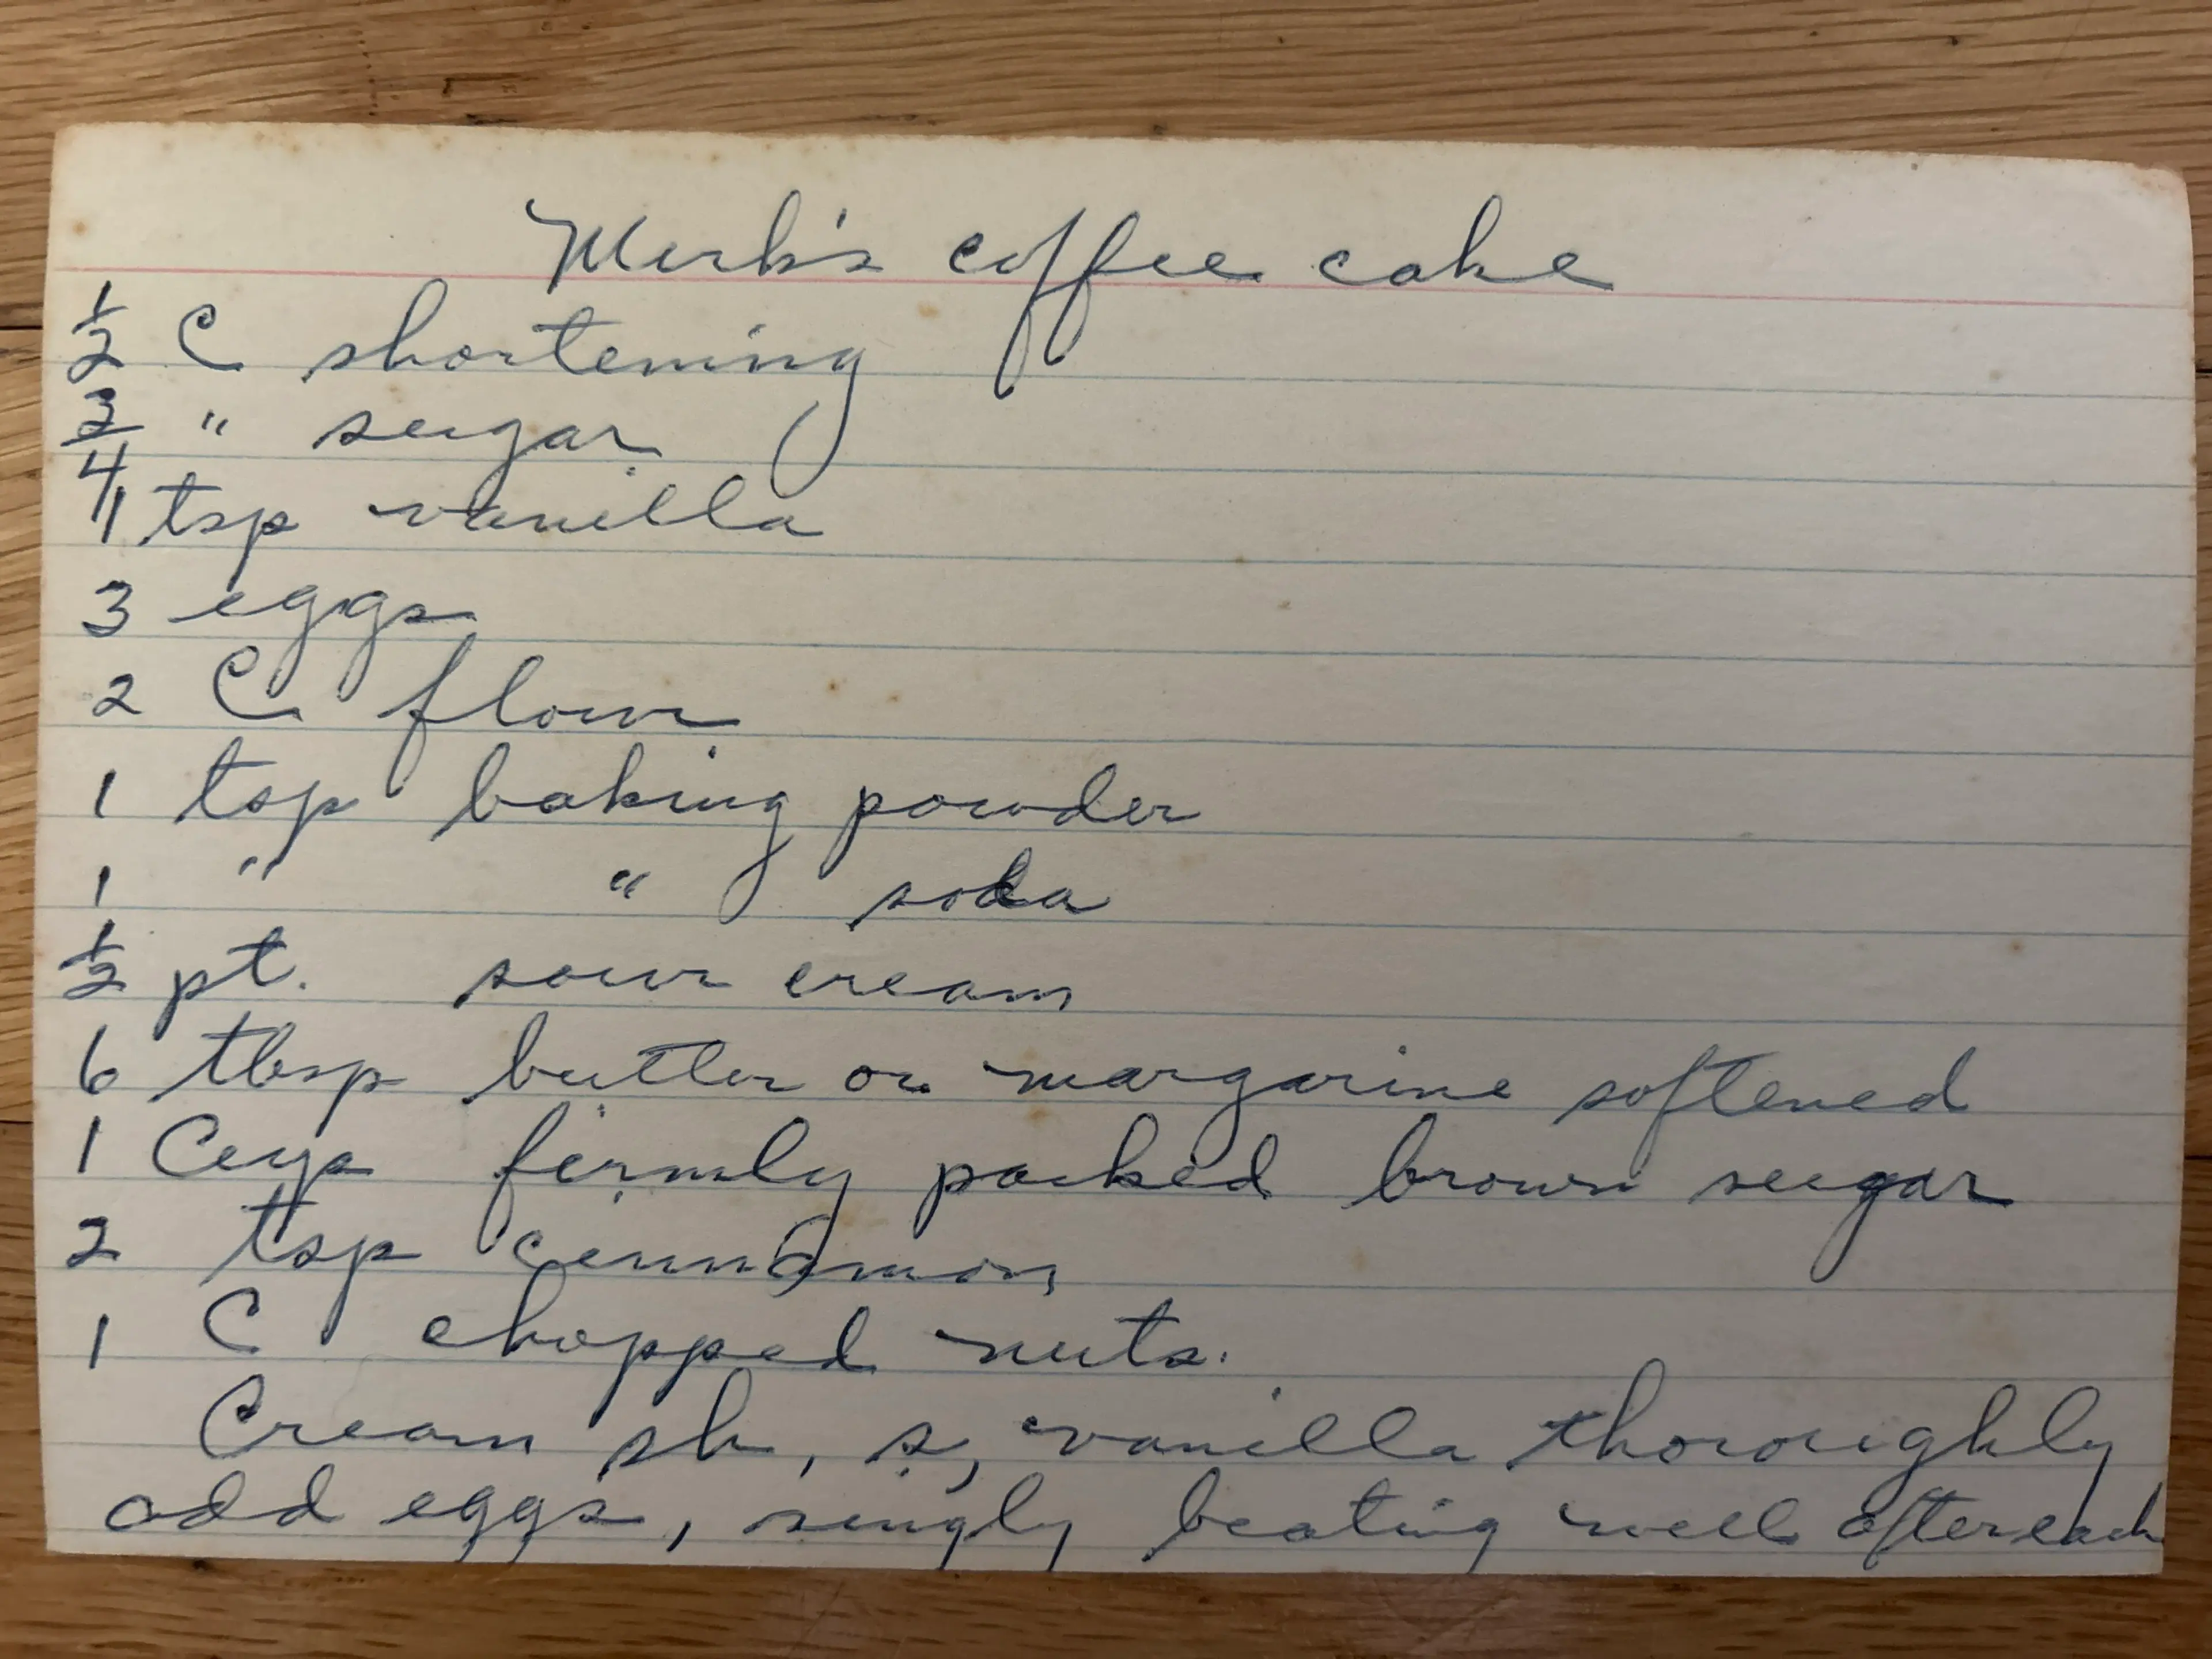 Merk's coffee cake
1/2 C shortening
3/4 " sugar
1 tsp vanilla
3 eggs
2 C flour
1 tsp baking powder
1 " " soda
1/2 pt. sour cream
6 tbsp butter or margarine softened
1 Cup firmly packed brown sugar
2 tsp cinnamon
1 C chopped nuts.
Cream sh, s, vanilla thoroughly
add eggs, singly beating well after each